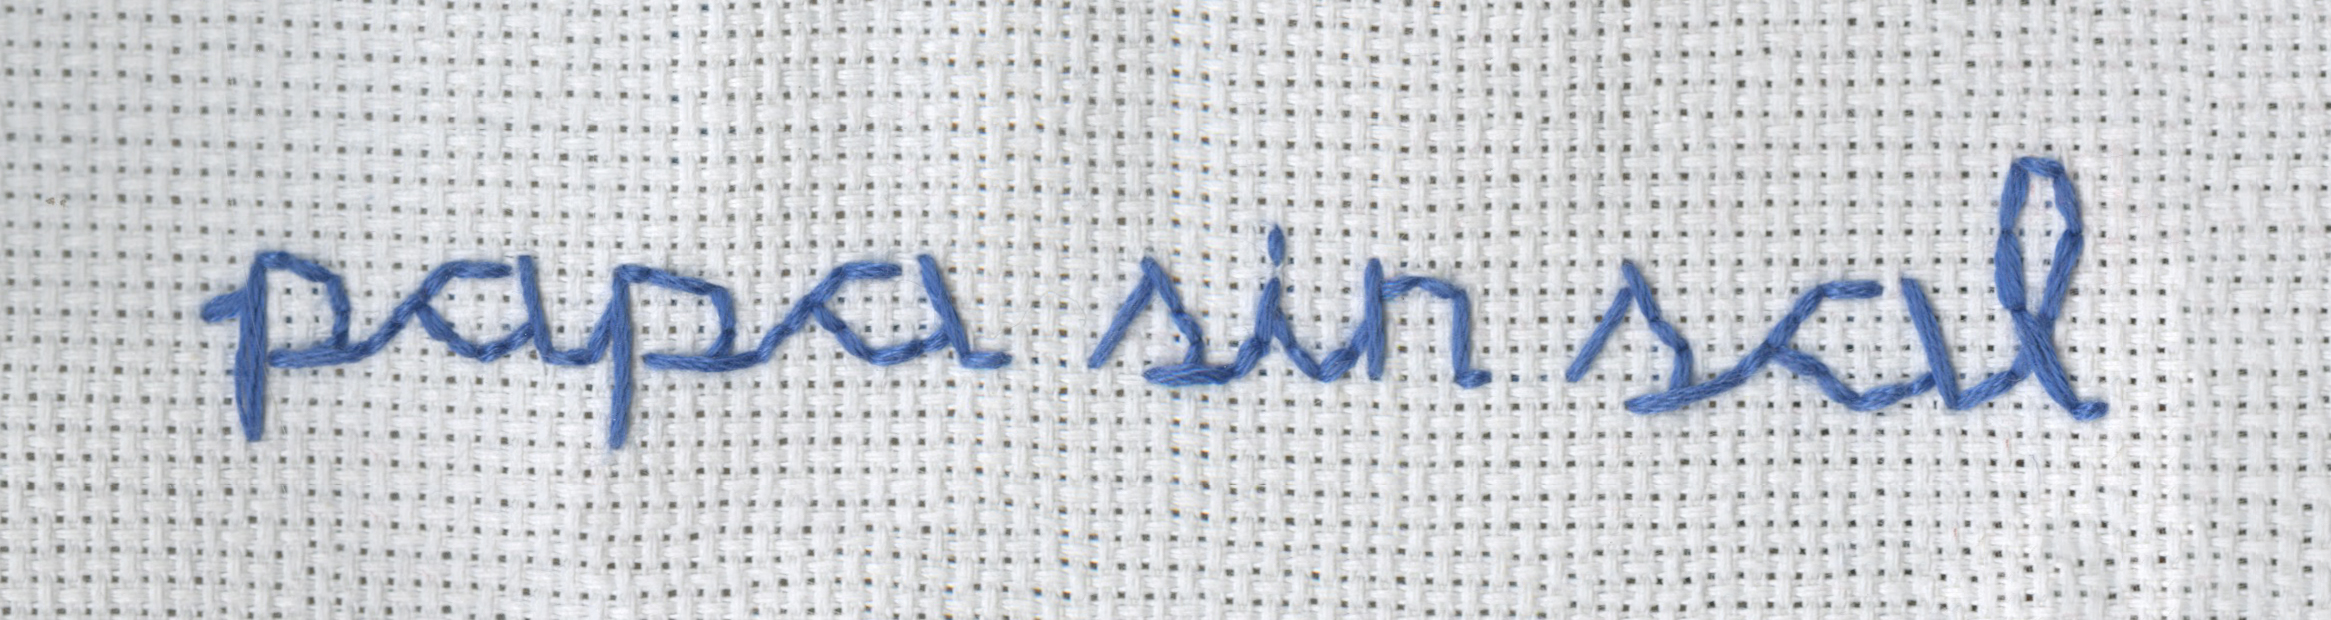 papa sin sal